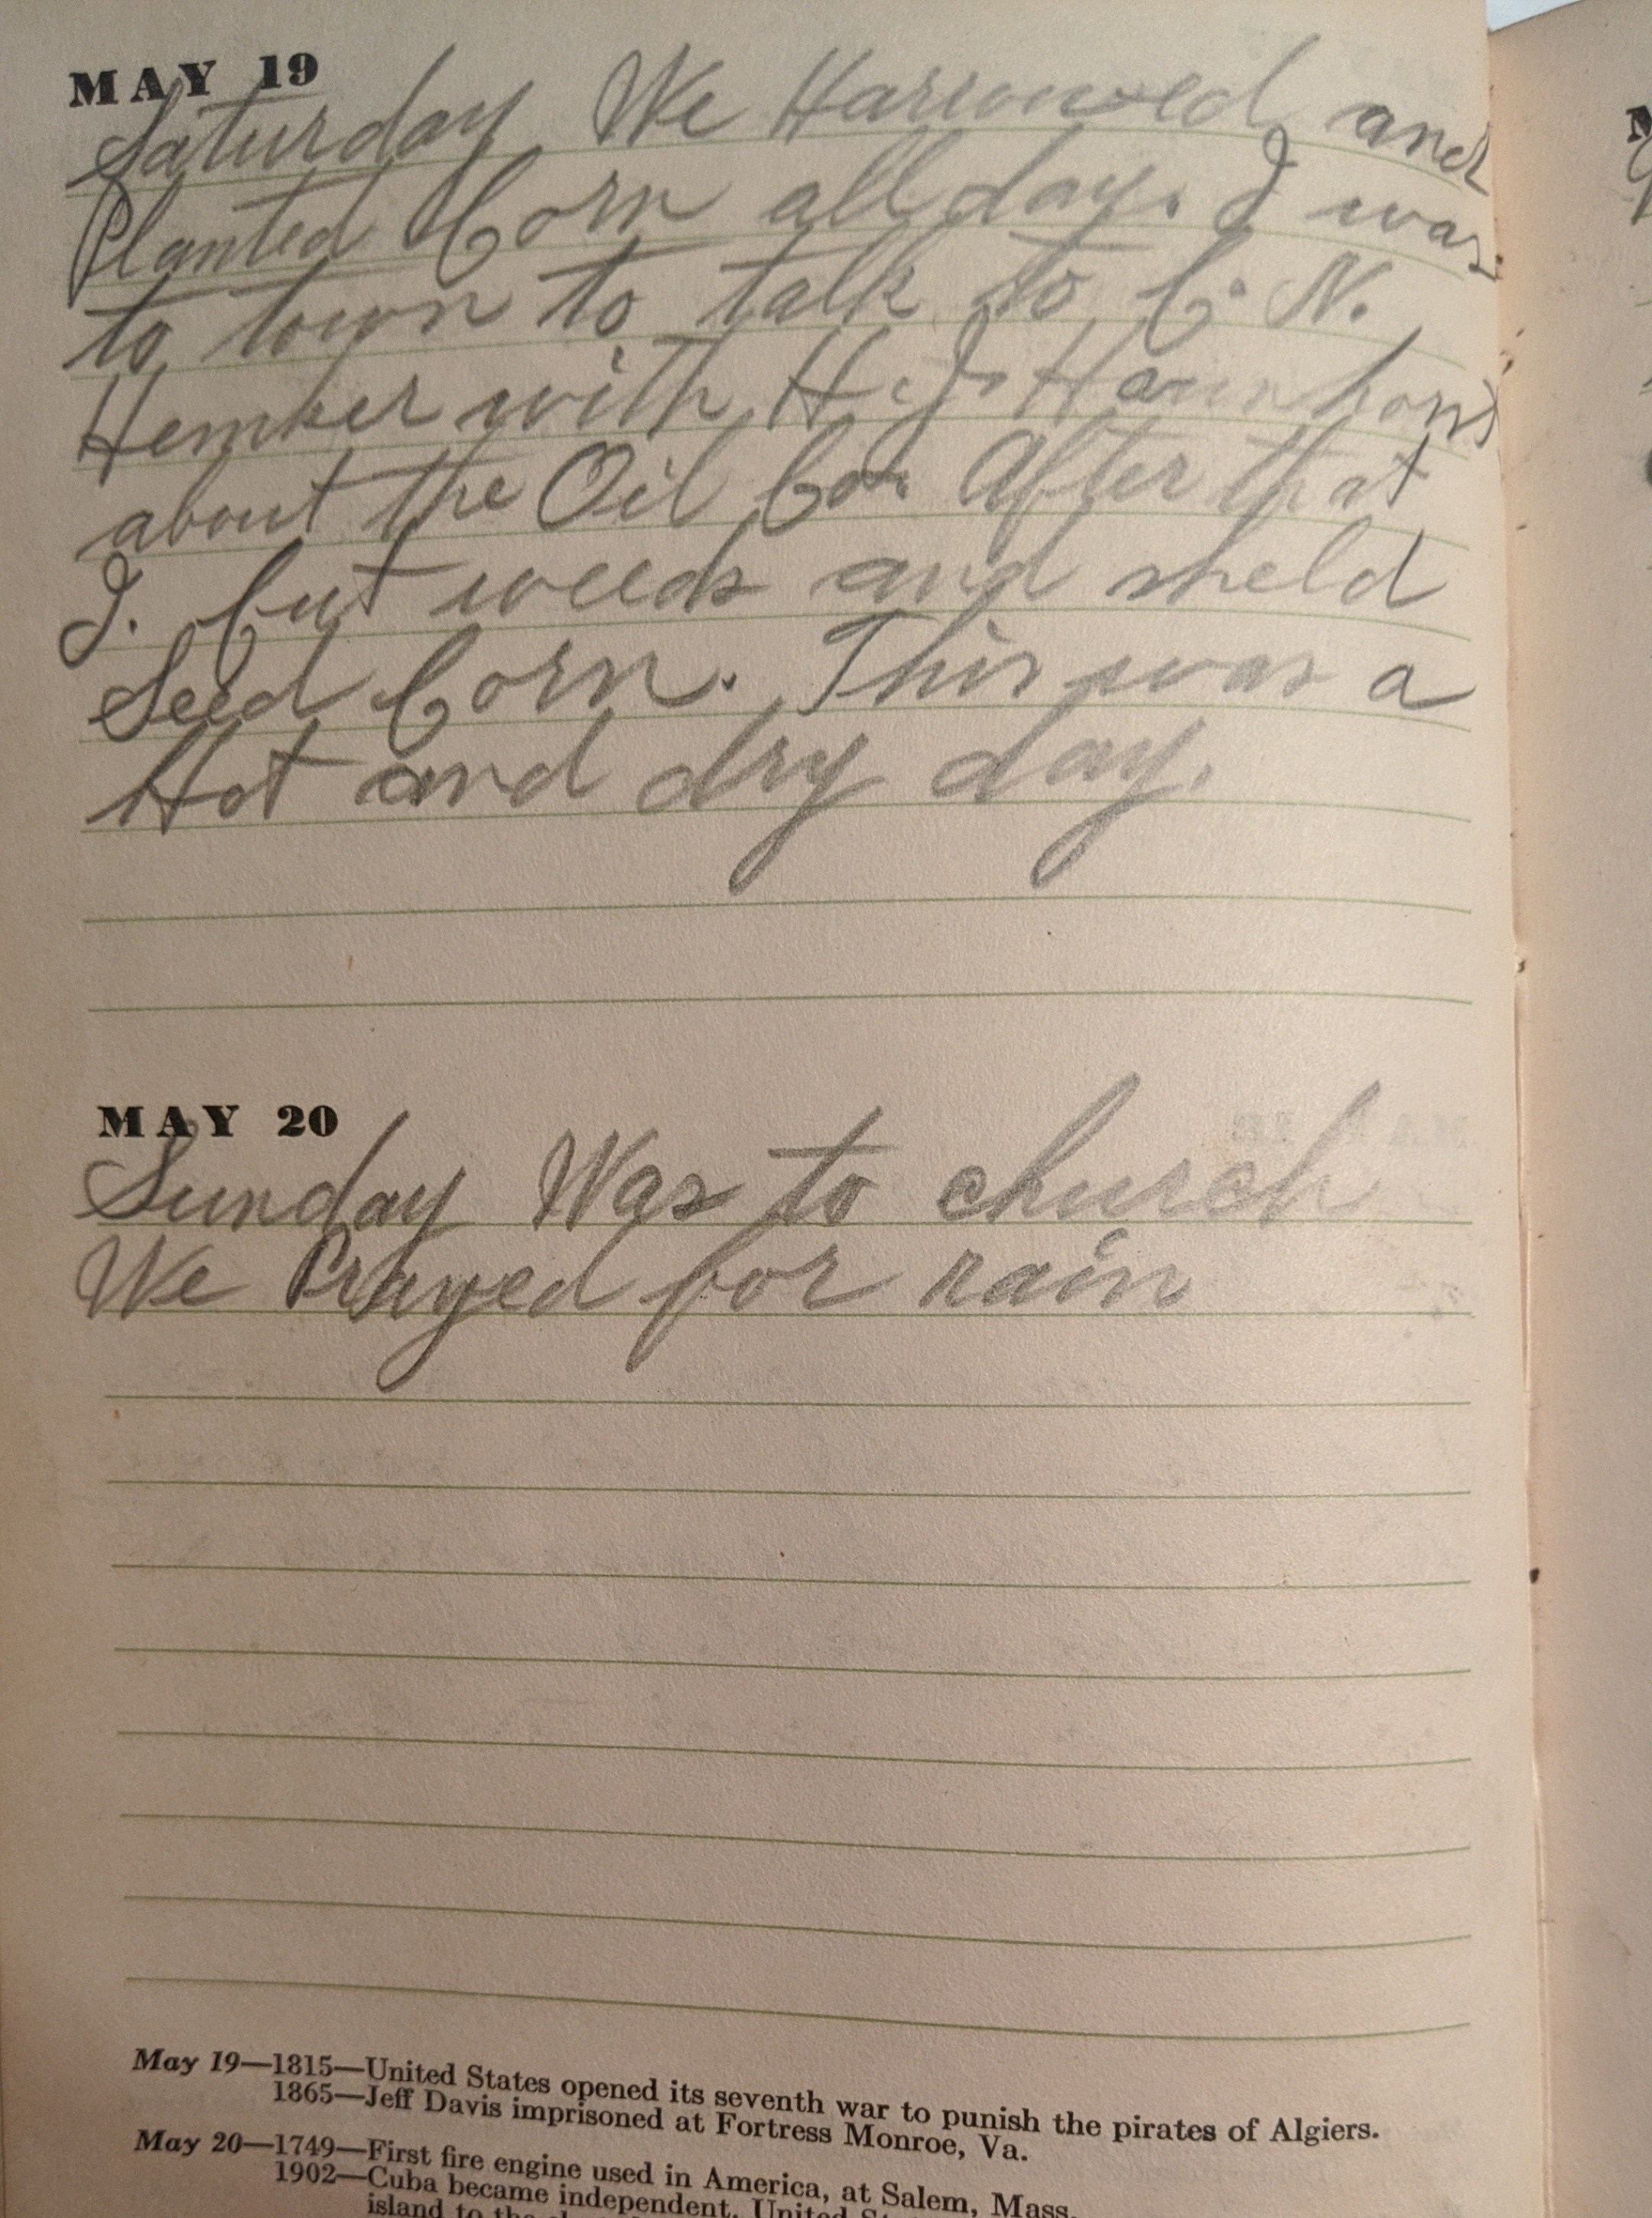 MAY 19
Saturday We Harrowed and
Planted Corn all day. I was
to town to talk to C. N.
Hemker with H. J.
about the Oil Co. After that
I. Cut weeds and sheld
Seed Corn. This was a
Hot and dry day.
MAY 20
Sunday Was to church
We Prayed for rain
May 19—1815—United States opened its seventh war to punish the pirates of Algiers.
1865—Jeff Davis imprisoned at Fortress Monroe, Va.
May 20—1749—First fire engine used in America, at Salem, Mass.
1902—Cuba became independent. United
island to the